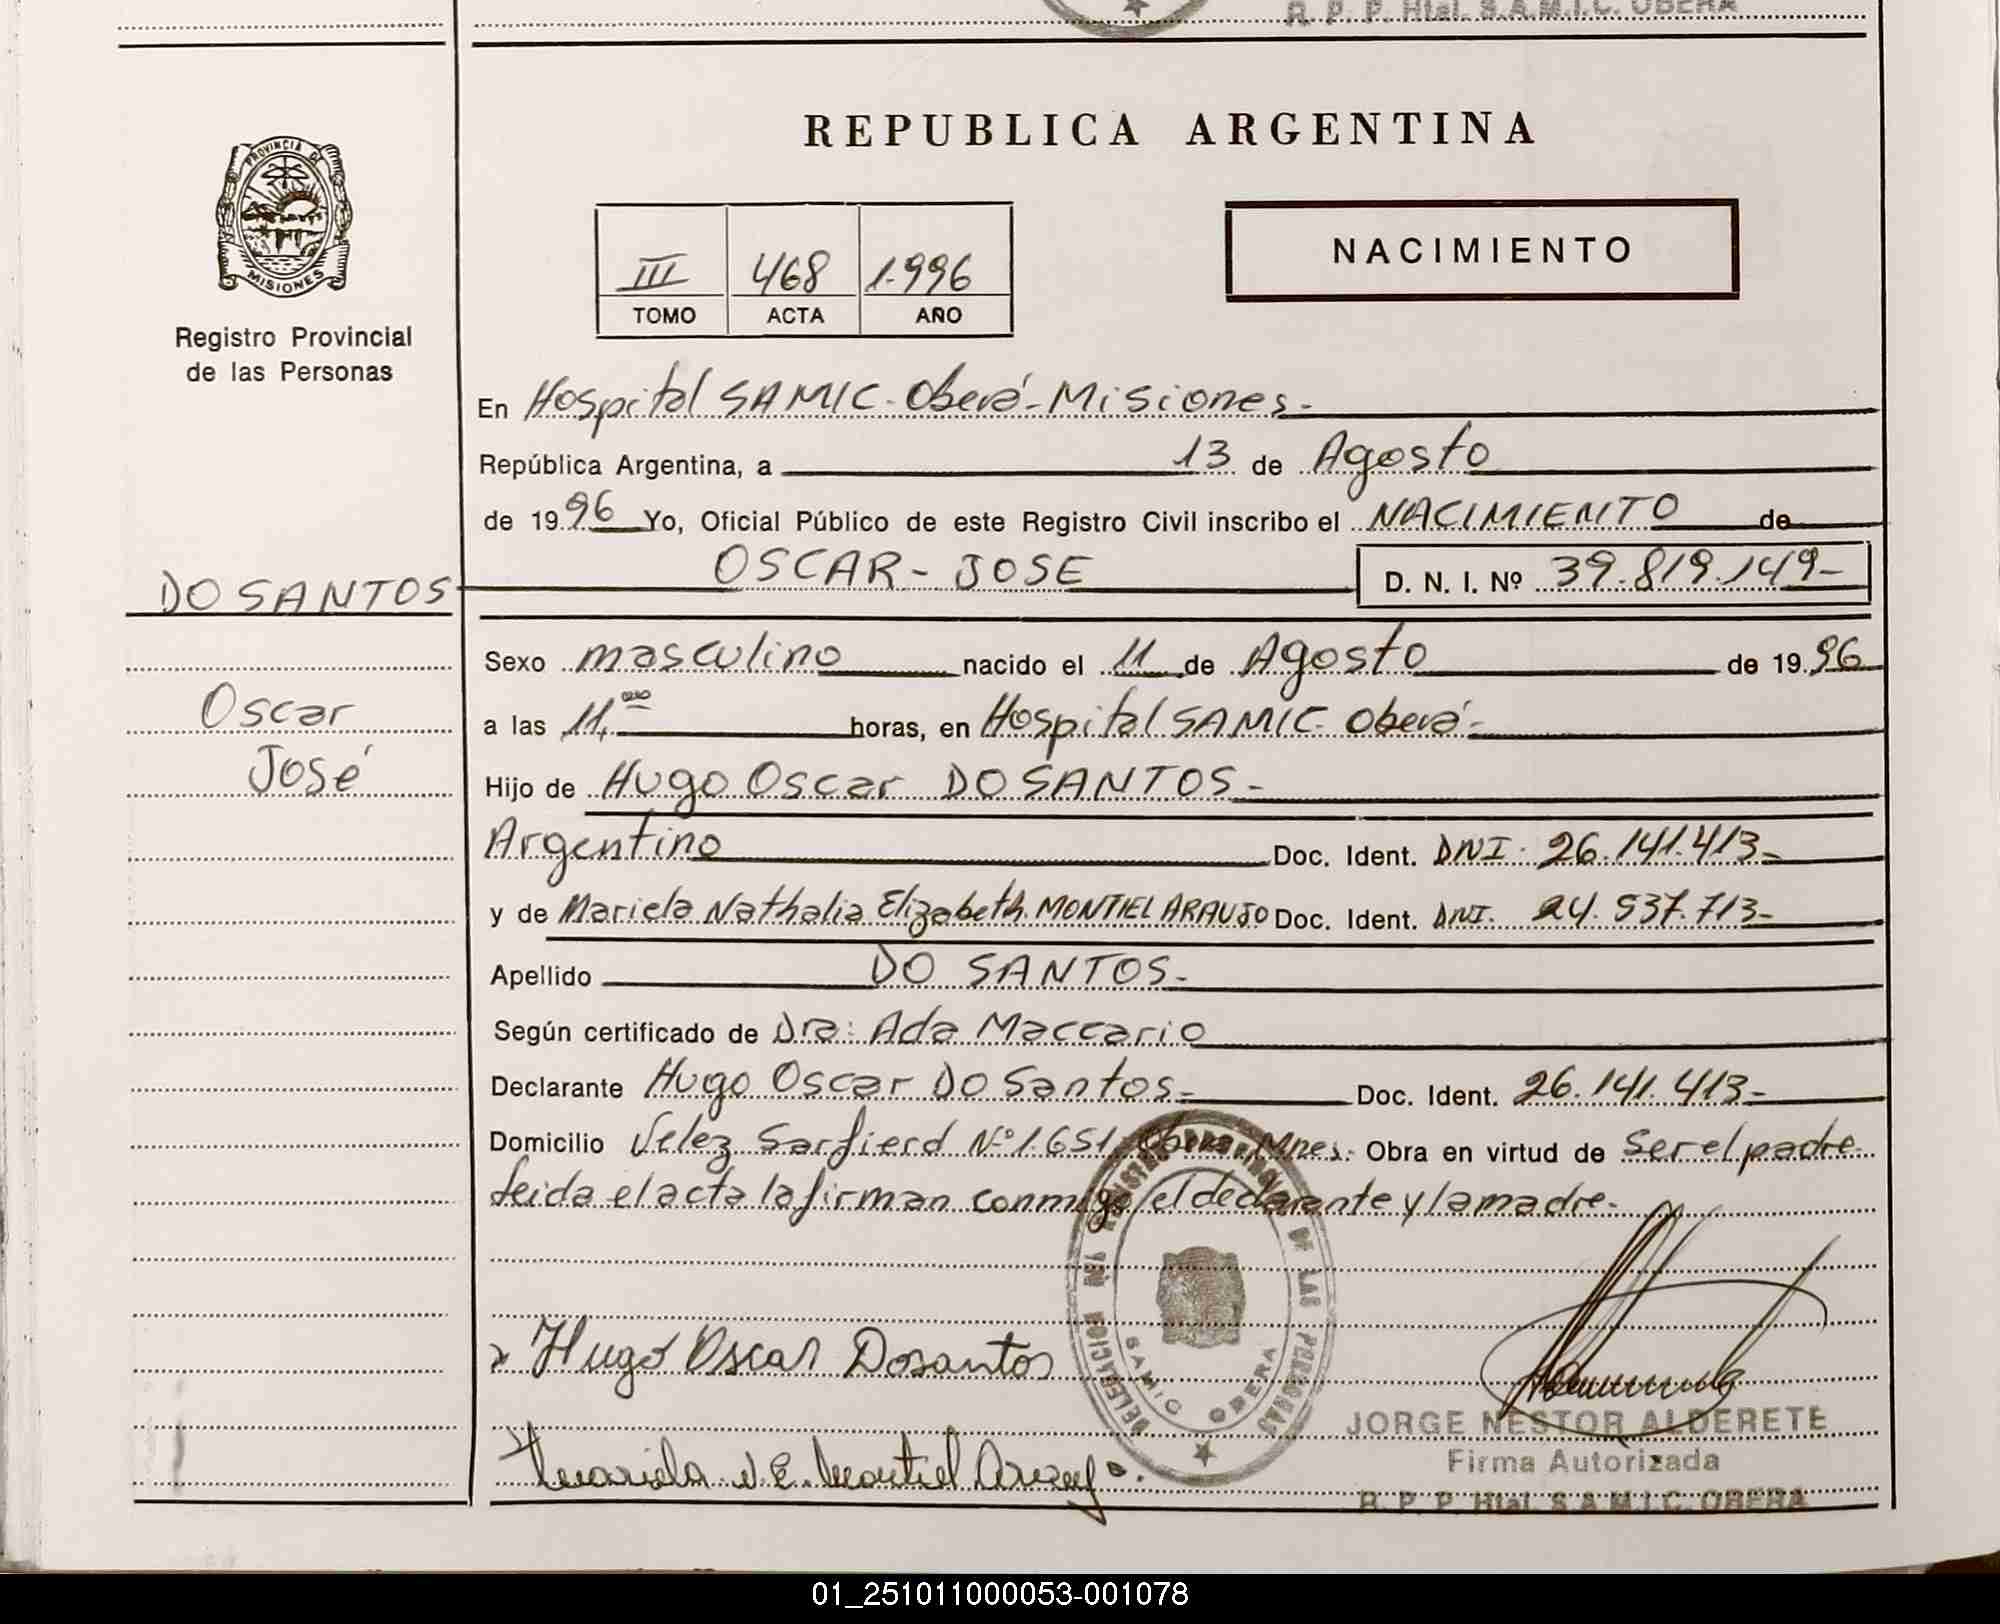 R. P. P. Htal. S.A.M.I.C. OBERA
PROVINCIA DE
MISIONES
Registro Provincial
de las Personas
REPUBLICA ARGENTINA
III 468 1.996
TOMO ACTA AÑO
NACIMIENTO
En Hospital SAMIC - Oberá - Misiones.-
República Argentina, a 13 de Agosto
de 1996 Yo, Oficial Público de este Registro Civil inscribo el NACIMIENTO de
OSCAR - JOSE D. N. I. Nº 39.819.149-
DO SANTOS
Oscar
José
Sexo masculino nacido el 11 de Agosto de 1996
a las 11,00 horas, en Hospital SAMIC - Oberá-
Hijo de Hugo Oscar DO SANTOS.-
Argentino Doc. Ident. DNI. 26.141.413-
y de Mariela Nathalia Elizabeth MONTIEL ARAUJO Doc. Ident. DNI. 24.537.713-
Apellido DO SANTOS.-
Según certificado de Dra: Ada Maccario
Declarante Hugo Oscar Do Santos.- Doc. Ident. 26.141.413-
Domicilio Velez Sarfierd Nº 1.651, Obera, Mnes.- Obra en virtud de Ser el padre.
Leida el acta la firman conmigo el declarante y la madre.-
Hugo Oscar Dosantos
Mariela N. E. Montiel Araujo.
DELEGACION REGISTRO PROVINCIAL DE LAS PERSONAS
SAMIC OBERA
JORGE NESTOR ALDERETE
Firma Autorizada
R. P. P. Htal. S.A.M.I.C. OBERA
01_251011000053-001078